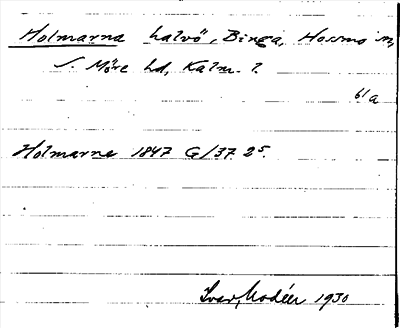 Holmarna halvö, Binga, Hossmo sn,
S. Möre hd, Kalm. l.
61a
Holmarne 1847 G/37 25.
Ivar Modéer 1930